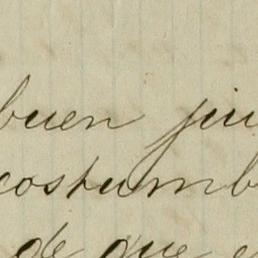 buen jui
costumb
de que